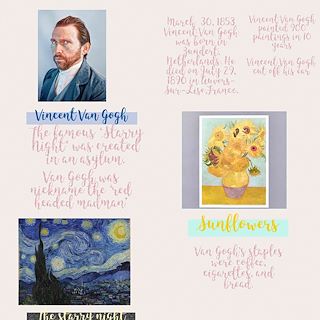 March 30, 1853
Vincent Van Gogh
was born in
Zundert,
Netherlands. He
died on July 29,
1890 in
Sur-Oise, France.
Vincent Van Gogh
painted 900
paintings in 10
years
Vincent Van Gogh
cut off his ear
Vincent Van Gogh
The famous "Starry
Night" was created
in an asylum.
Van Gogh was
nickname the 'red
headed madman'
Sunflowers
Van Gogh's staples
were coffee,
cigarettes, and
bread
The starry night